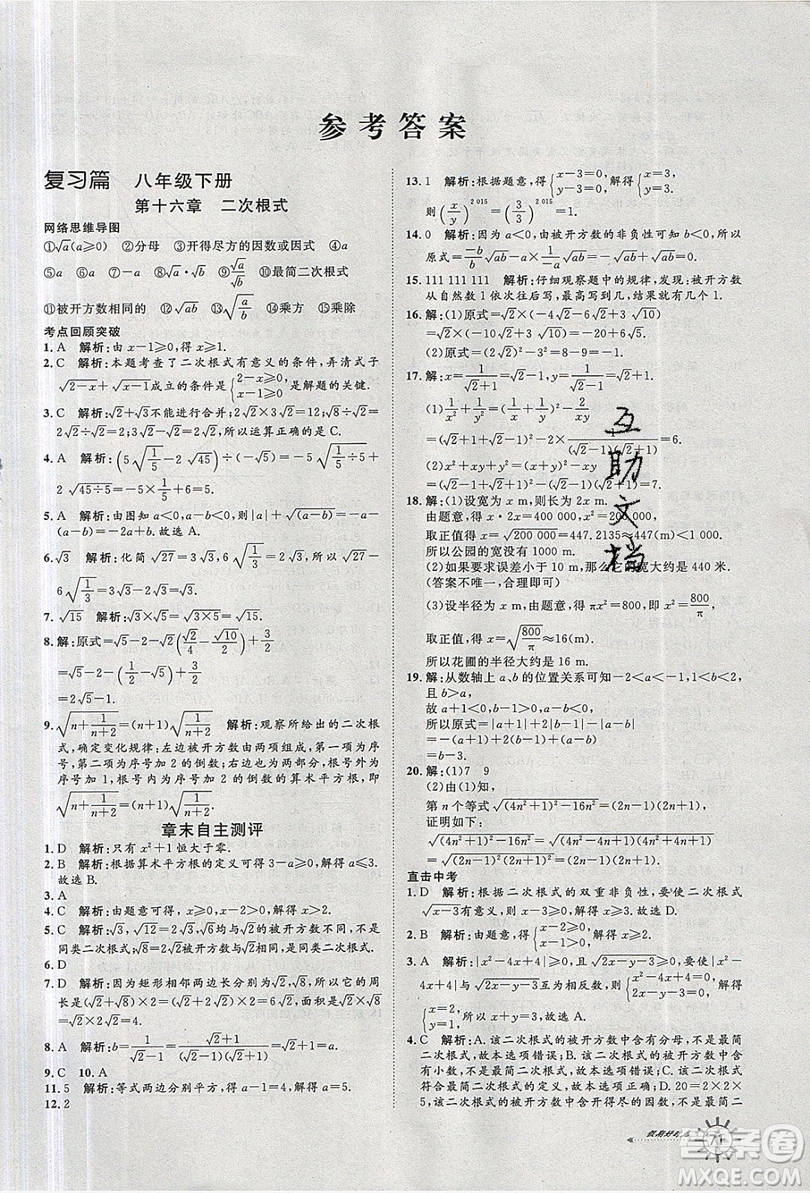 参考答案
复习篇 八年级下册
第十六章 二次根式
网络思维导图
①√a(a≥0) ②分母 ③开得尽方的因数或因式 ④a
⑤√a ⑥a ⑦-a ⑧√ab ⑨√(a/b) ⑩最简二次根式
⑪被开方数相同的 ⑫√ab ⑬√(a/b) ⑭乘方 ⑮乘除
考点回顾突破
1. A 解析:由 x-1≥0,得 x≥1.
2. C 解析:本题考查了二次根式有意义的条件,弄清式子
√(2-x)+√(x-1)成立的条件是{2-x≥0, x-1≥0}是解题的关键.
3. C 解析:√2+√3不能进行合并;2√2×3√2=12;√8÷√2=
2;3√2-√2=2√2,所以运算正确的是 C.
4. A 解析:(5√(1/5)-2√45)÷(-√5)=-5√(1/5÷5)+
2√(45÷5)=-1+6=5.
5. A 解析:由图知 a<0,a-b<0,则|a|+√(a-b)²=-a-
(a-b)=-2a+b.故选 A.
6. √3 解析:化简√27=3√3,6√(1/3)=2√3,√27-
6√(1/3)=3√3-2√3=√3.
7. √15 解析:√3×√5=√(3×5)=√15.
8. 解:原式=√5-2√5(√2/4-√10/2)+3/2
=√5-√10/2+√50/2+3/2
=2√5-1.
9. √(n+1/(n+2))=(n+1)√(1/(n+2)) 解析:观察所给出的二次根
式,确定变化规律:左边被开方数由两项组成,第一项为序
号,第二项为序号加 2 的倒数;右边也为两部分,根号外为
序号加 1,根号内为序号加 2 的倒数的算术平方根,即
√(n+1/(n+2))=(n+1)√(1/(n+2)).
章末自主测评
1. D 解析:只有 x²+1 恒大于零.
2. B 解析:根据算术平方根的定义可得 3-a≥0,解得 a≤3.
故选 B.
3. A
4. C 解析:由题意可得 x≥0,x-1>0,解得 x>1.
5. C 解析:√3,√12,√18与√2被开方数不同,不是
同类二次根式;√8=2√2与√2被开方数相同,是同类二次根式.
6. D
7. D 解析:因为矩形相邻两边互相垂直,所以它的周
长是(√2+√8)×2=6√2,面积是√2×√8=4.
8. A 解析:b=1/(√2-1)=(√2+1)/((√2-1)(√2+1))=√2+1=a.
9. C 10. A
11. 5 解析:等式两边平方,得 a-1=4,解得 a=5.
12. 2
13. 1 解析:根据题意,得{x-3=0, y-3=0},解得{x=3, y=3}.
则(x/y)^2015=(3/3)^2015=1.
14. 0 解析:因为 a<0,由被开方数的非负性可知 b<0,所以
原式=(-b/b)√ab+√ab=-√ab+√ab=0.
15. 111 111 111 解析:仔细观察题中的规律,发现:被开方数
从自然数 1 依次往后写,到几,结果就有几个 1.
16. 解:(1)原式=√2×(-4√2-6√2+3√10)
=√2×(-10√2+3√10)=-20+6√5.
(2)原式=(√2)²-1²=2-1=1.
17. 解:x=1/(√2+1)=√2-1,y=√2+1.
(1)1/x²+1/y²=(1/x+1/y)²-2/xy
=(√2+1+√2-1)²-2×1/((√2-1)(√2+1))=6.
(2)x²+xy+y²=(x+y)²-xy
=(√2-1+√2+1)²-(√2-1)(√2+1)=7.
18. 解:(1)设宽为 x m,则长为 2x m.
由题意,得 x·2x=400 000,x²=200 000.
取正值,得 x=√200 000=447.2135≈447(m)<1 000(m).
所以公园的宽没有 1000 m.
(2)如果要求误差小于 10 m,那么它的宽大约是 440 米.
(答案不唯一,合理即可)
(3)设半径为 x m,由题意,得 πx²=800,x²=800/π.
取正值,得 x=√(800/π)≈16(m).
所以花圃的半径大约是 16 m.
19. 解:从数轴上 a、b 的位置关系可知-2<a<-1,1<b<2,
且 b>a,故 a+1<0,b-1>0,a-b<0.
所以原式=|a+1|+2|b-1|-|a-b|
=-(a+1)+2(b-1)+(a-b)
=b-3.
20. 解:(1)7 9
(2)由(1)知,
第 n 个等式√((4n²+1)²-16n²)=(2n-1)(2n+1),
证明如下:
√((4n²+1)²-16n²)=√((4n²+1+4n)(4n²+1-4n))
=√((2n-1)²(2n+1)²)=(2n-1)(2n+1).
直击中考
1. D 解析:根据二次根式的双重非负性,知x≥0,
√(x-3)有意义,x-3≥0,x≥3.故选 D.
2. B 解析:由题意,得{x-2≥0, x-1≠0},解得 x≥2.故选 B.
3. A 解析:因为|x²-4x+4|与√(2x-y-3)互为相反数,所以|x²
-4x+4|+√(2x-y-3)=0,所以{x²-4x+4=0, 2x-y-3=0},解得
{x=2, y=1}.所以 x+y=3.故选 A.
4. C 解析:A. 该二次根式的被开方数中含有分母,不是最简
二次根式,故本选项错误;B. 该二次根式的被开方数中含有
小数,不是最简二次根式,故本选项错误;C. 该二次根式
符合最简二次根式的定义,故本选项正确;D. 20=2²×5,
该二次根式的被开方数中含有开得尽方的因数,不是最简二
互助文档
假期好时光
71
答案圈
MXQE.COM